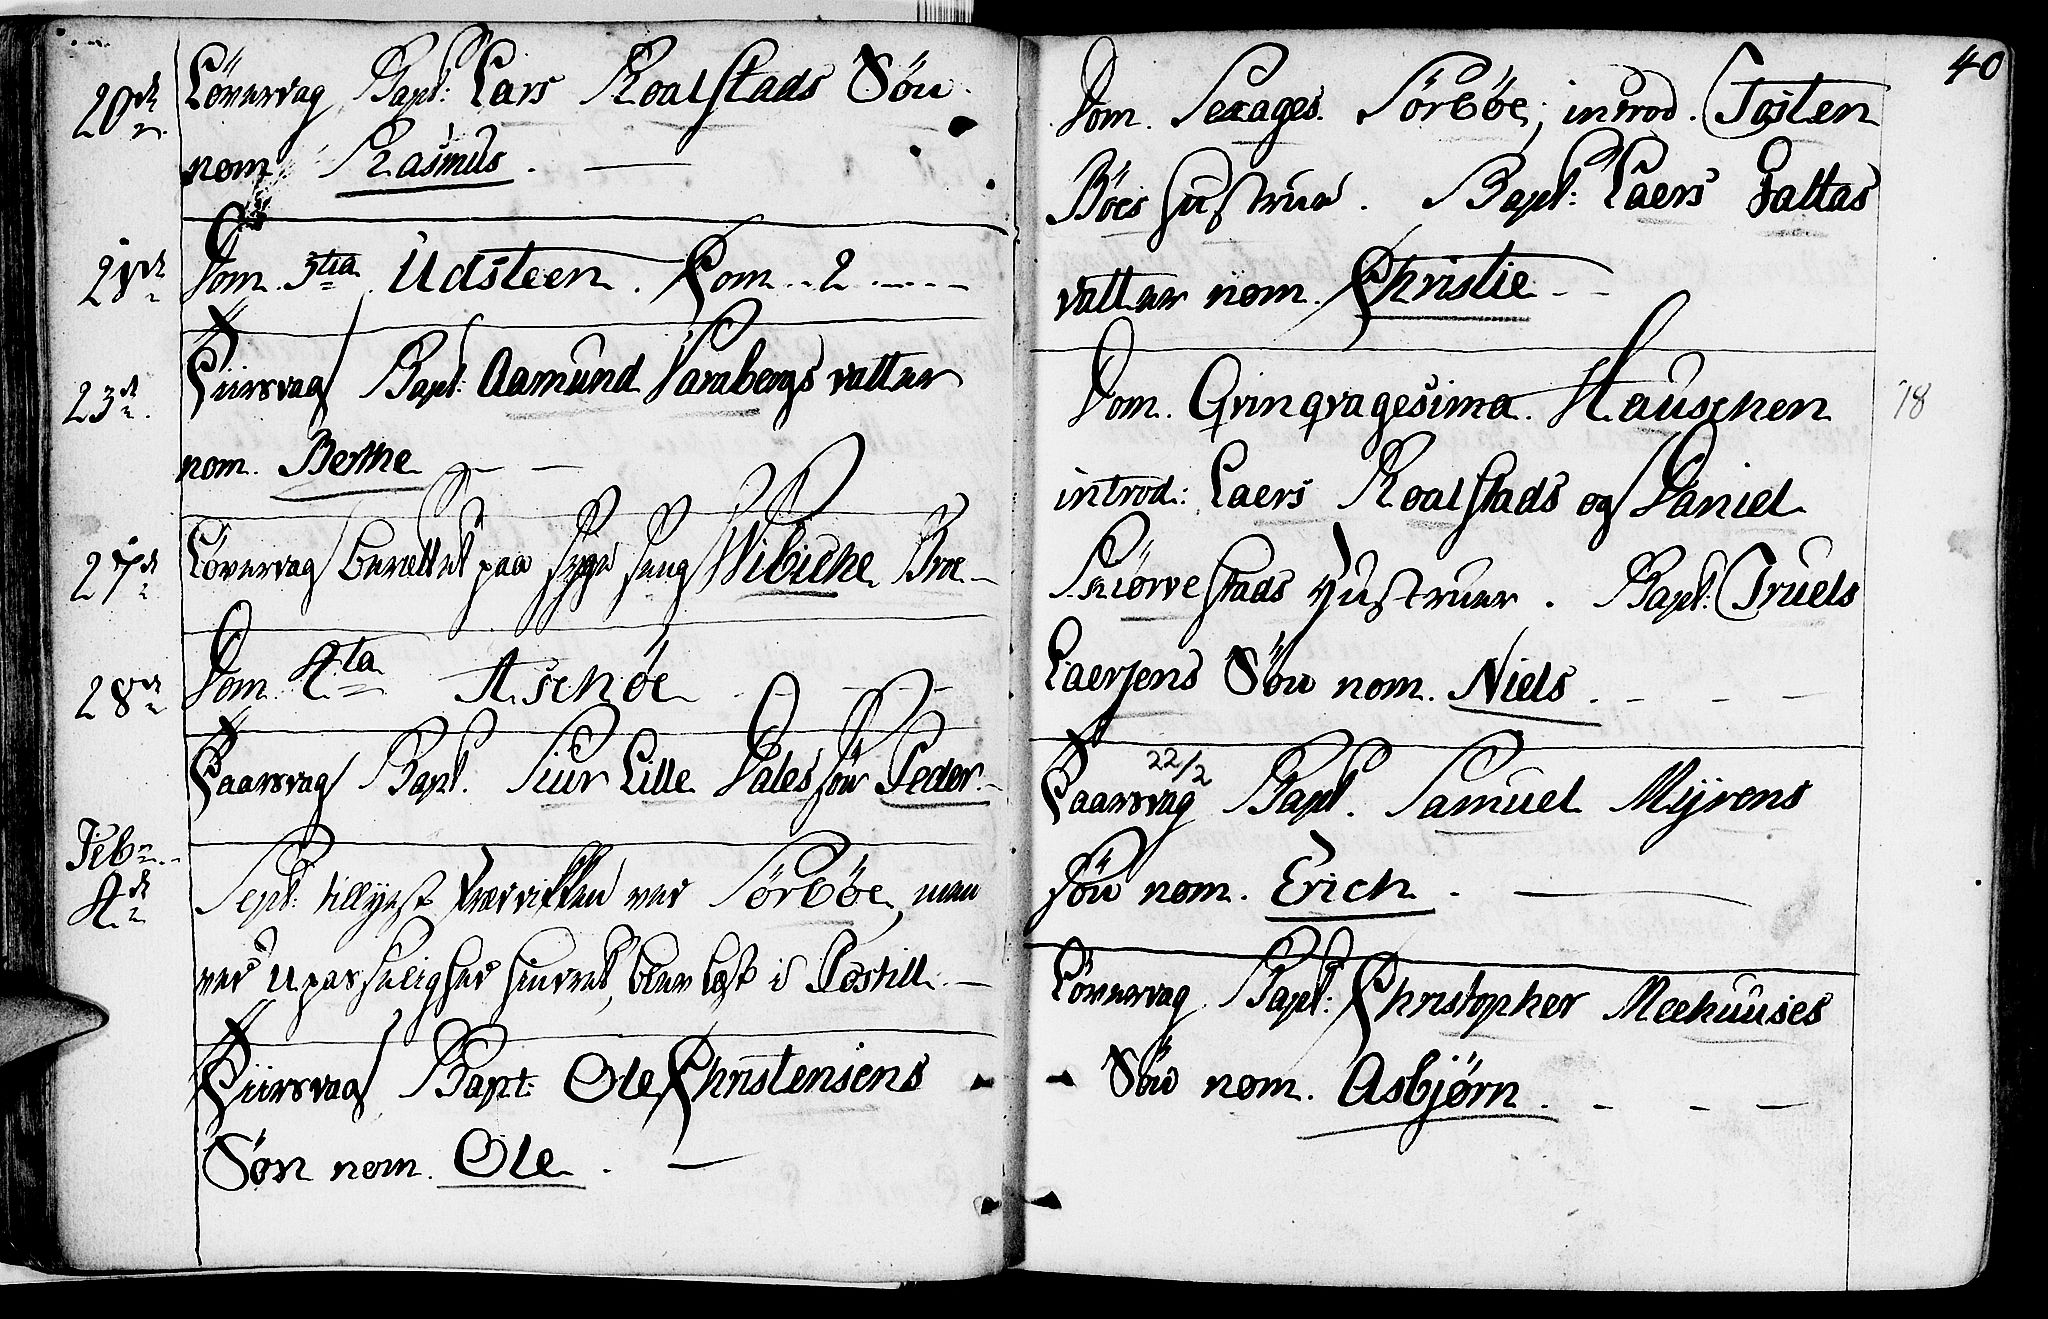 20de Löverdag Bapt: Lars Roalstads Sön
nom Rasmus. —
21de Dom. 3tia Udsteen. Com.. 2 ....
23de. Tiirsdag Bapt: Aamund Varabergs datter
nom. Berthe — —
27de Löverdag berettet paa syge seng Wibiche Broe
28de Dom 4ta Aschöe
Taarsdag Bapt. Siur Lille Dales sön Peder
Feb
4de Sept: tillyst Prædikken ved Sörböe, men
ved Upasselighed hindret, blev læst i Postill.
Tiirsdag Bapt: Ole Christensens
Sön nom. Ole. —
40
Dom. Sexages. Sörböe; introd. Tosten
Böes hustrue. Bapt: Laers Faltas
datter nom. Christie
Dom. Qvinqvagesima. Hauschen 18
introd: Laers Roalstads og Daniel
Skiörvestads Hustruer. Bapt: Truels
Laersens Sön nom. Niels
22/2
Taarsdag Bapt. Samuel Myrens
sön nom. Erich. —
Löverdag Bapt: Christopher Meehuuses
Sön nom. Asbjörn